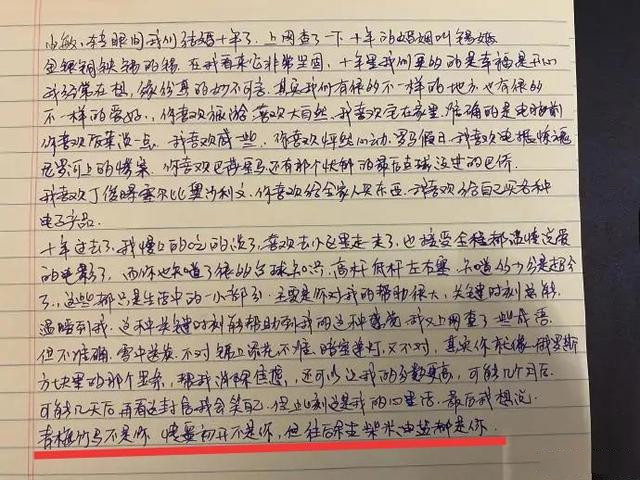 小敏,转眼间我们结婚十年了,上网查了一下十年的婚姻叫锡婚
金银铜铁锡的锡,在我看来它非常坚固,十年里我们更多的是幸福是开心
我经常在想,缘份真的妙不可言,其实我们有很多不一样的地方也有很多
不一样的爱好,你喜欢旅游喜欢大自然,我喜欢宅在家里,准确的是电脑前
你喜欢蔬菜淡一点,我喜欢咸一些,你喜欢怦然心动,罗马假日,我喜欢电锯惊魂
尼罗河上的惨案,你喜欢巴蒂 还有那个快船的最后点球没进的巴乔
我喜欢丁俊晖塞尔比奥沙利文,你喜欢给全家人买东西,我喜欢给自己买各种
电子产品.
十年过去了,我慢慢的吃的淡了,喜欢去小区里走走了,也接受全程都温情浪漫
的电影了,而你也知道了很多台球知识,高杆低杆左右塞,知道的 是超分
了,这些都只是生活中的一小部分,主要是你对我的帮助很大,关键时刻总能
温暖到我,这种关键时刻能帮助到我的这种感觉我又上网查了一些成语
但不准确,雪中送炭,不对,锦上添花,不准,暗室逢灯,又不对,其实你就像俄罗斯
方块里的那个竖条,帮我消除焦虑,还可以让我的分数更高,可能几个月后
可能几天后再看这封信我会笑自己,但此刻这是我的心里话,最后我想说
青梅竹马不是你,情窦初开不是你,但往后余生柴米油盐都是你.